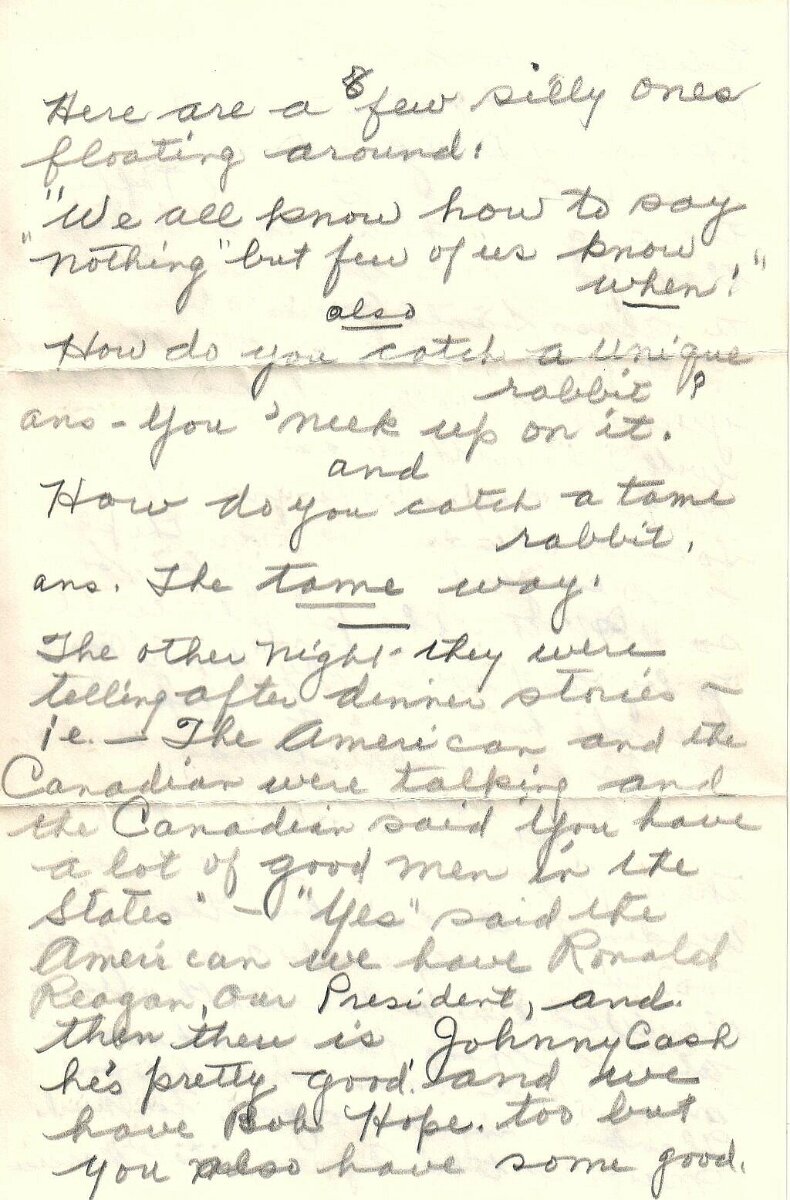 8
Here are a few silly ones
floating around:
"We all know how to say
"nothing" but few of us know
when!"
also
How do you catch a unique
rabbit?
ans - You 'neek up on it.
and
How do you catch a tame
rabbit,
ans. The tame way.
The other night they were
telling after dinner stories -
ie. - The American and the
Canadian were talking and
the Canadian said "You have
a lot of good men in the
States" - "Yes" said the
American we have Ronald
Reagan, our President, and
then there is Johnny Cash
he's pretty good. and we
have Bob Hope. too but
you also have some good.